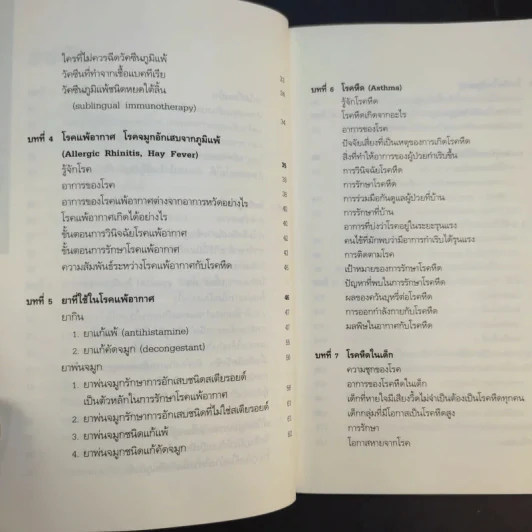 ใครที่ไม่ควรฉีดวัคซีนภูมิแพ้
วัคซีนที่ทำจากเชื้อแบคทีเรีย
วัคซีนภูมิแพ้ชนิดหยดใต้ลิ้น
(sublingual immunotherapy)
บทที่ 4 โรคแพ้อากาศ โรคจมูกอักเสบจากภูมิแพ้
(Allergic Rhinitis, Hay Fever)
รู้จักโรค
อาการของโรค
อาการของโรคแพ้อากาศต่างจากอาการหวัดอย่างไร
โรคแพ้อากาศเกิดได้อย่างไร
ขั้นตอนการวินิจฉัยโรคแพ้อากาศ
ขั้นตอนการรักษาโรคแพ้อากาศ
ความสัมพันธ์ระหว่างโรคแพ้อากาศกับโรคหืด
บทที่ 5 ยาที่ใช้ในโรคแพ้อากาศ
ยากิน
1. ยาแก้แพ้ (antihistamine)
2. ยาแก้คัดจมูก (decongestant)
ยาพ่นจมูก
1. ยาพ่นจมูกรักษาการอักเสบชนิดสเตียรอยด์
เป็นตัวหลักในการรักษาโรคแพ้อากาศ
2. ยาพ่นจมูกรักษาการอักเสบชนิดที่ไม่ใช่สเตียรอยด์
3. ยาพ่นจมูกชนิดแก้แพ้
4. ยาพ่นจมูกชนิดแก้คัดจมูก
บทที่ 6 โรคหืด (Asthma)
รู้จักโรคหืด
โรคหืดเกิดจากอะไร
อาการของโรค
ปัจจัยเสี่ยงที่เป็นเหตุของการเกิดโรคหืด
สิ่งที่ทำให้อาการของผู้ป่วยกำเริบขึ้น
การวินิจฉัยโรคหืด
การรักษาโรคหืด
การร่วมมือกันดูแลผู้ป่วยที่บ้าน
การรักษาที่บ้าน
อาการที่บ่งว่าโรคอยู่ในระยะรุนแรง
คนไข้ที่มักพบว่ามีอาการกำเริบได้รุนแรง
การติดตามโรค
เป้าหมายของการรักษาโรคหืด
ปัญหาที่พบในการรักษาโรคหืด
ผลของควันบุหรี่ต่อโรคหืด
การออกกำลังกายกับโรคหืด
มลพิษในอากาศกับโรคหืด
บทที่ 7 โรคหืดในเด็ก
ความชุกของโรค
อาการของโรคหืดในเด็ก
เด็กที่หายใจมีเสียงวี้ดไม่จำเป็นต้องเป็นโรคหืดทุกคน
เด็กกลุ่มที่มีโอกาสเป็นโรคหืดสูง
การรักษา
โอกาสหายจากโรค